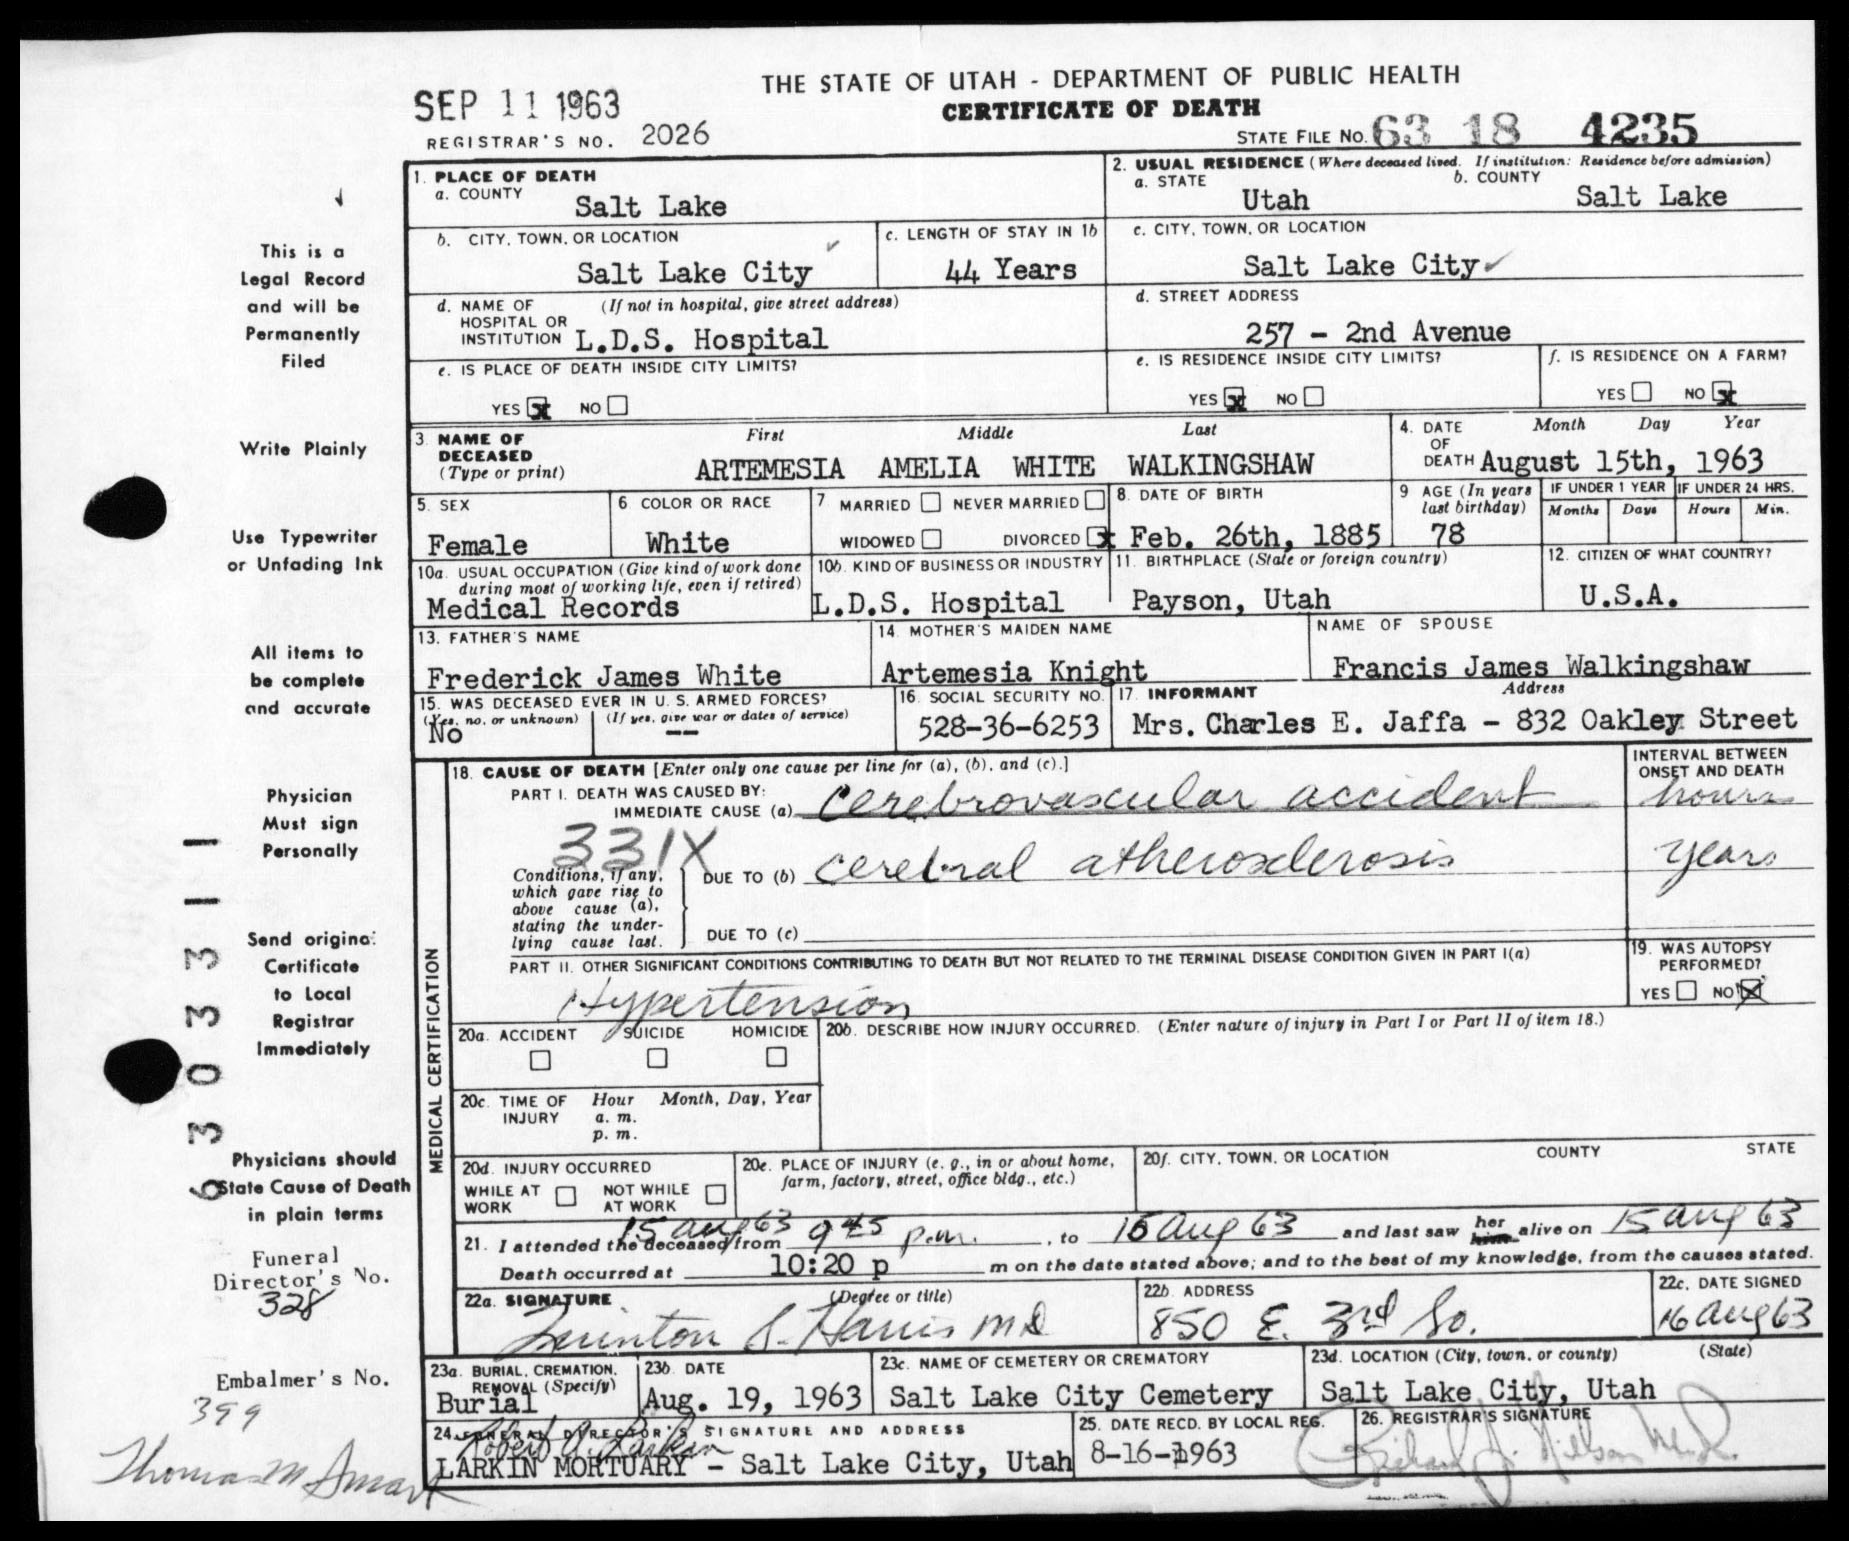 THE STATE OF UTAH - DEPARTMENT OF PUBLIC HEALTH
CERTIFICATE OF DEATH
SEP 11 1963
REGISTRAR'S NO. 2026
STATE FILE NO. 63 18 4235
1. PLACE OF DEATH
a. COUNTY
Salt Lake
2. USUAL RESIDENCE (Where deceased lived. If institution: Residence before admission)
a. STATE
Utah
b. COUNTY
Salt Lake
b. CITY, TOWN, OR LOCATION
Salt Lake City
c. LENGTH OF STAY IN 1b
44 Years
c. CITY, TOWN, OR LOCATION
Salt Lake City
d. NAME OF HOSPITAL OR INSTITUTION (If not in hospital, give street address)
L.D.S. Hospital
d. STREET ADDRESS
257 - 2nd Avenue
e. IS PLACE OF DEATH INSIDE CITY LIMITS?
YES x NO
e. IS RESIDENCE INSIDE CITY LIMITS?
YES x NO
f. IS RESIDENCE ON A FARM?
YES NO x
3. NAME OF DECEASED (Type or print)
First Middle Last
ARTEMESIA AMELIA WHITE WALKINGSHAW
4. DATE OF DEATH
Month Day Year
August 15th, 1963
5. SEX
Female
6 COLOR OR RACE
White
7 MARRIED NEVER MARRIED
WIDOWED DIVORCED x
8. DATE OF BIRTH
Feb. 26th, 1885
9 AGE (In years last birthday)
78
IF UNDER 1 YEAR
Months Days
IF UNDER 24 HRS.
Hours Min.
10a. USUAL OCCUPATION (Give kind of work done during most of working life, even if retired)
Medical Records
10b. KIND OF BUSINESS OR INDUSTRY
L.D.S. Hospital
11. BIRTHPLACE (State or foreign country)
Payson, Utah
12. CITIZEN OF WHAT COUNTRY?
U.S.A.
13. FATHER'S NAME
Frederick James White
14. MOTHER'S MAIDEN NAME
Artemesia Knight
NAME OF SPOUSE
Francis James Walkingshaw
15. WAS DECEASED EVER IN U. S. ARMED FORCES?
(Yes, no, or unknown) (If yes, give war or dates of service)
No --
16. SOCIAL SECURITY NO.
528-36-6253
17. INFORMANT Address
Mrs. Charles E. Jaffa - 832 Oakley Street
MEDICAL CERTIFICATION
18. CAUSE OF DEATH [Enter only one cause per line for (a), (b), and (c).]
INTERVAL BETWEEN ONSET AND DEATH
PART I. DEATH WAS CAUSED BY:
IMMEDIATE CAUSE (a) Cerebrovascular accident hours
331X
Conditions, if any, which gave rise to above cause (a), stating the underlying cause last.
DUE TO (b) cerebral atherosclerosis years
DUE TO (c)
PART II. OTHER SIGNIFICANT CONDITIONS CONTRIBUTING TO DEATH BUT NOT RELATED TO THE TERMINAL DISEASE CONDITION GIVEN IN PART I(a)
Hypertension
19. WAS AUTOPSY PERFORMED?
YES NO X
20a. ACCIDENT SUICIDE HOMICIDE
20b. DESCRIBE HOW INJURY OCCURRED. (Enter nature of injury in Part I or Part II of item 18.)
20c. TIME OF INJURY
Hour Month, Day, Year
a. m.
p. m.
20d. INJURY OCCURRED
WHILE AT WORK NOT WHILE AT WORK
20e. PLACE OF INJURY (e. g., in or about home, farm, factory, street, office bldg., etc.)
20f. CITY, TOWN, OR LOCATION COUNTY STATE
21. I attended the deceased from 15 Aug 63 9 45 p.m., to 15 Aug 63 and last saw her him alive on 15 Aug 63
Death occurred at 10:20 p m on the date stated above; and to the best of my knowledge, from the causes stated.
22a. SIGNATURE (Degree or title)
S. Harris MD
22b. ADDRESS
850 E. 3rd So.
22c. DATE SIGNED
16 Aug 63
23a. BURIAL, CREMATION, REMOVAL (Specify)
Burial
23b. DATE
Aug. 19, 1963
23c. NAME OF CEMETERY OR CREMATORY
Salt Lake City Cemetery
23d. LOCATION (City, town, or county) (State)
Salt Lake City, Utah
24. FUNERAL DIRECTOR'S SIGNATURE AND ADDRESS
Robert A. Larkin
LARKIN MORTUARY - Salt Lake City, Utah
25. DATE RECD. BY LOCAL REG.
8-16-1963
26. REGISTRAR'S SIGNATURE
This is a
Legal Record
and will be
Permanently
Filed
Write Plainly
Use Typewriter
or Unfading Ink
All items to
be complete
and accurate
Physician
Must sign
Personally
Send original
Certificate
to Local
Registrar
Immediately
Physicians should
State Cause of Death
in plain terms
Funeral
Director's No.
328
Embalmer's No.
399
Thomas M Smart
6303311